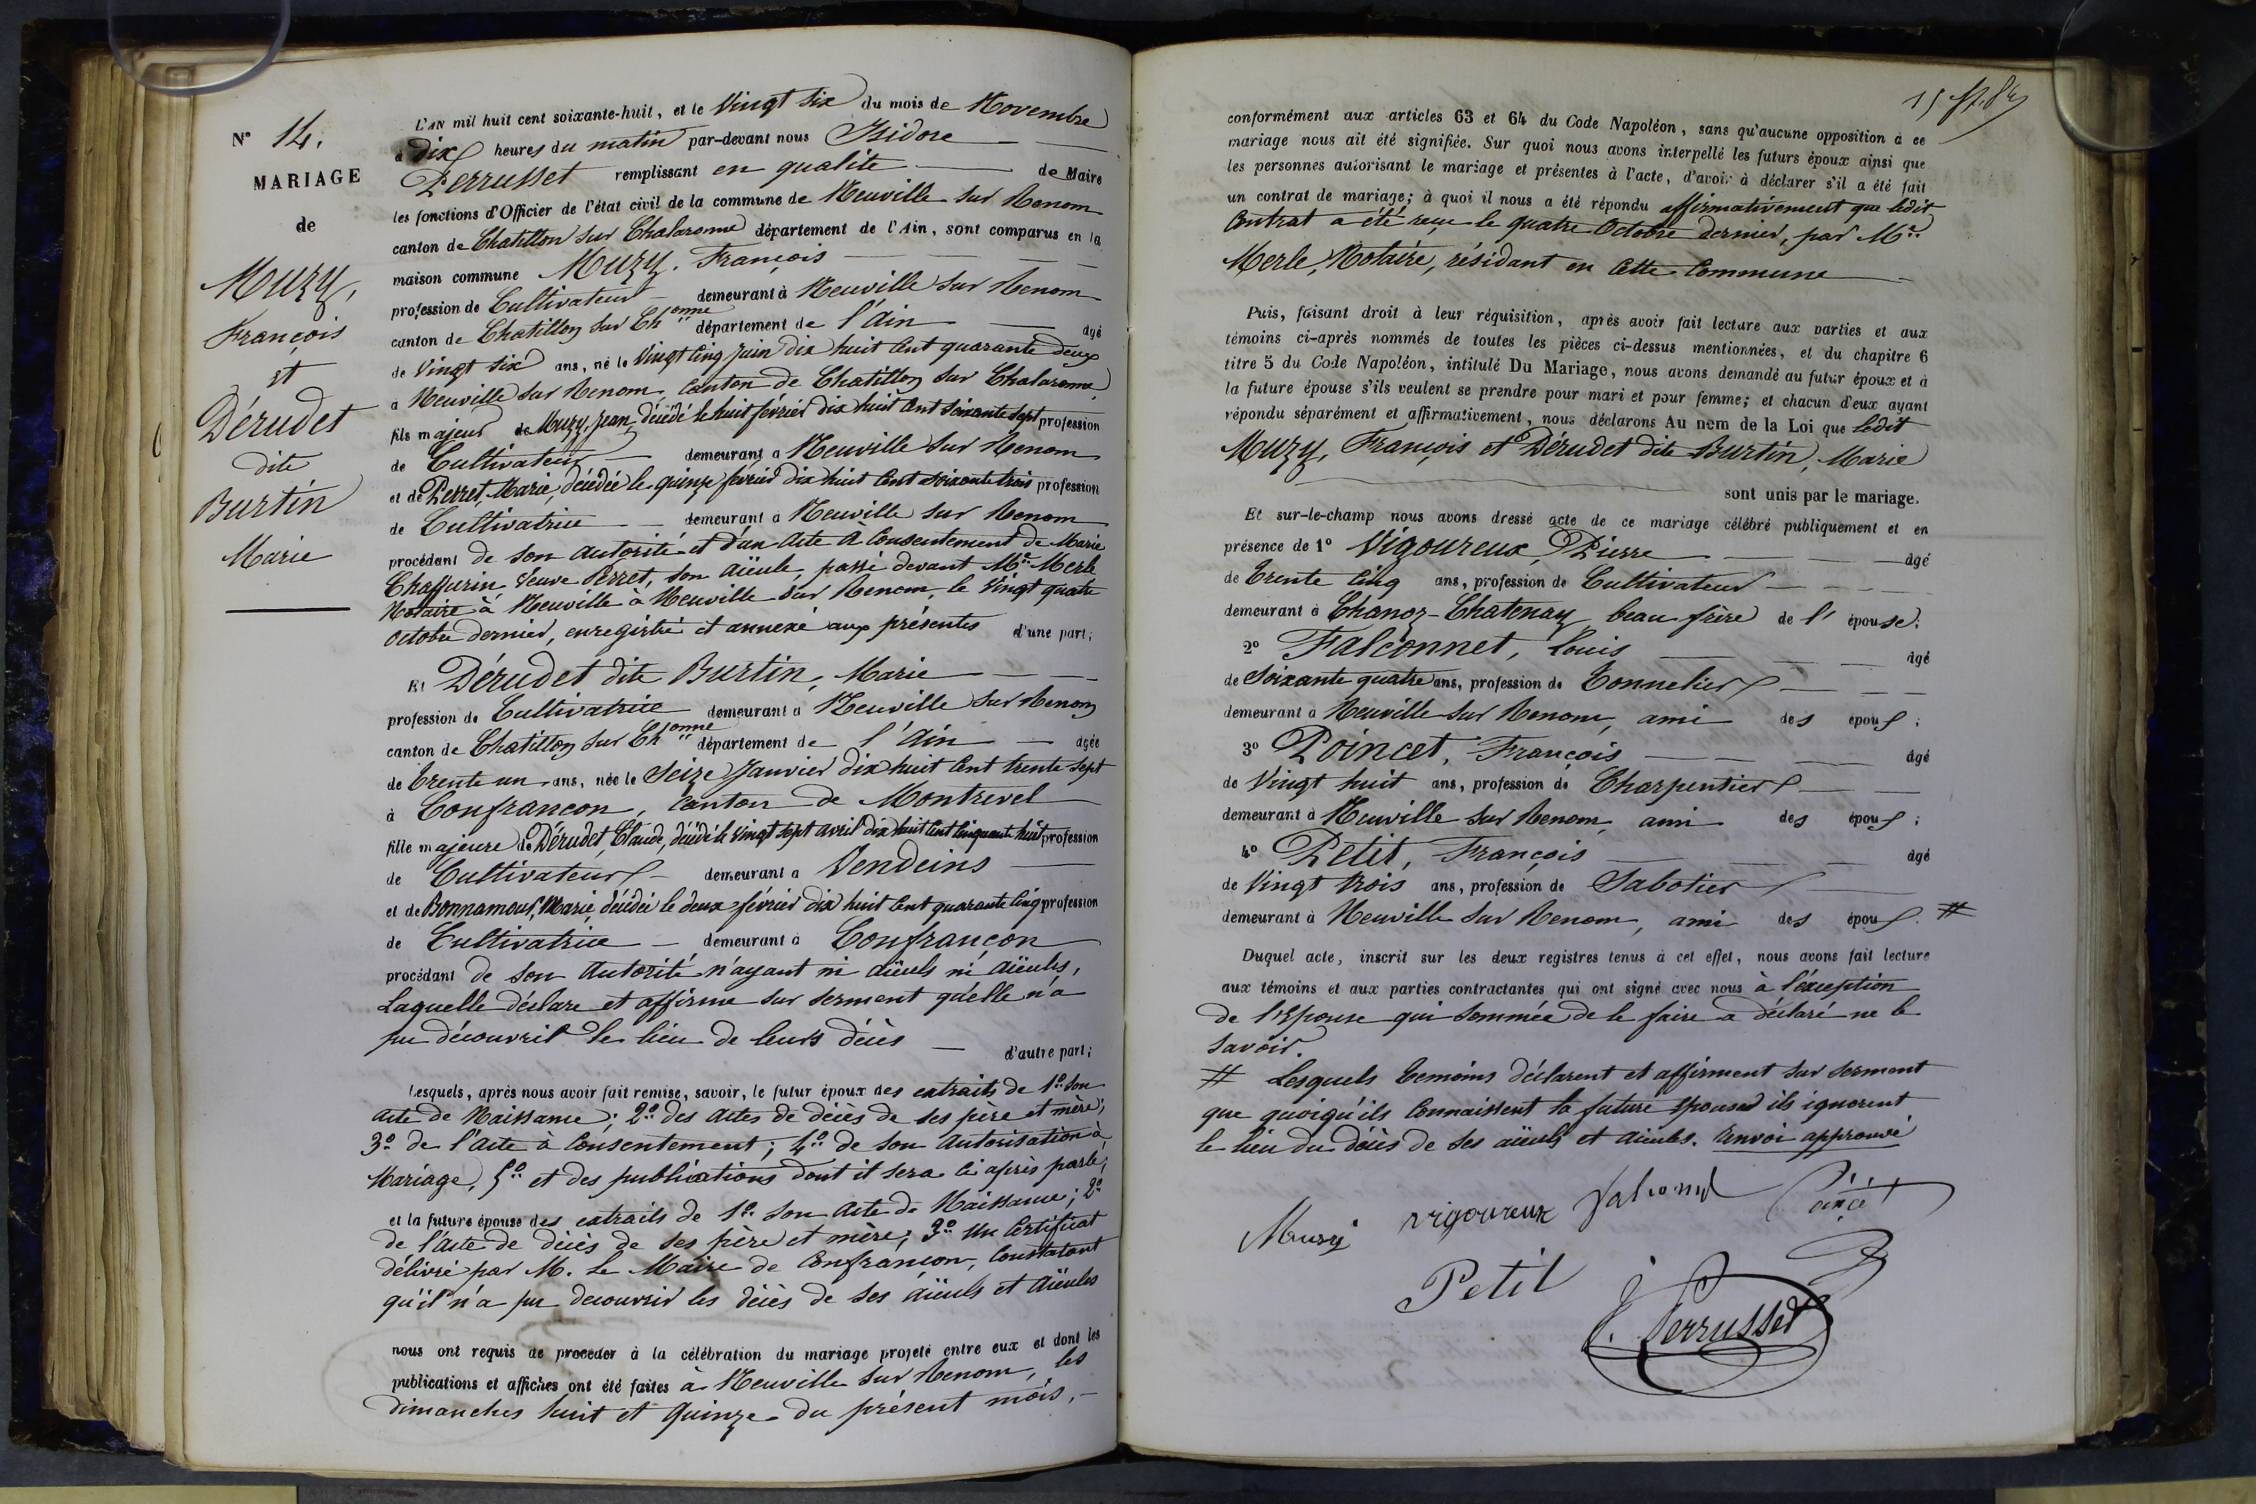 N° 14.
MARIAGE
de
Muzy,
François
et
Dérudet
dite
Burtin
Marie
L'AN mil huit cent soixante-huit, et le Vingt Six du mois de Novembre
à dix heures du matin par-devant nous Isidore
Perrusset remplissant en qualité de Maire
les fonctions d'Officier de l'état civil de la commune de Neuville sur Renom
canton de Chatillon sur Chalaronne département de l'Ain, sont comparus en la
maison commune Muzy. François
profession de Cultivateur demeurant à Neuville sur Renom
canton de Chatillon sur Ch"onne département de l'Ain âgé
de Vingt six ans, né le Vingt Cinq Juin dix huit Cent quarante deux
à Neuville sur Renom, Canton de Chatillon sur Chalaronne,
fils majeur de Muzy, Jean, décédé le huit février dix huit Cent soixante sept profession
de Cultivateur demeurant à Neuville sur Renom
et de Perret, Marie, décédée le quinze février dix huit Cent soixante trois profession
de Cultivatrice demeurant à Neuville sur Renom
procédant de son autorité et d'un acte à Consentement de Marie
Chaffurin Veuve Perret, son aïeule, passé devant Me. Merle
Notaire à Neuville à Neuville sur Renom, le Vingt quatre
octobre dernier, enregistré et annexé aux présentes d'une part;
Et Dérudet dite Burtin, Marie
profession de Cultivatrice demeurant à Neuville sur Renom
canton de Chatillon sur Ch"onne département de l'Ain âgée
de Trente un ans, née le Seize Janvier dix huit Cent trente sept
à Confrançon, Canton de Montrevel
fille majeure de Dérudet, Claude, décédé le vingt sept avril dix huit Cent Cinquante huit profession
de Cultivateur demeurant à Vendeins
et de Bonnamour, Marie, décédée le deux février dix huit Cent quarante Cinq profession
de Cultivatrice demeurant à Confrançon
procédant de son autorité n'ayant ni aïeuls ni aïeules,
Laquelle déclare et affirme sur serment qu'elle n'a
pu découvrir le lieu de leurs décès d'autre part;
Lesquels, après nous avoir fait remise, savoir, le futur époux des extraits de 1° son
acte de Naissance; 2° des actes de décès de ses père et mère;
3° de l'acte à Consentement; 4° de son autorisation à
Mariage, 5° et des publications dont il sera ci après parlé;
et la future épouse des extraits de 1° son acte de Naissance; 2°
de l'acte de décès de ses père et mère; 3° Un Certificat
délivré par M. le Maire de Confrançon, Constatant
qu'il n'a pu decouvrir les décès de ses aïeuls et aïeules
nous ont requis de procéder à la célébration du mariage projeté entre eux et dont les
publications et affiches ont été faites à Neuville sur Renom, les
dimanches huit et quinze du présent mois,
conformément aux articles 63 et 64 du Code Napoléon, sans qu'aucune opposition à ce
mariage nous ait été signifiée. Sur quoi nous avons interpellé les futurs époux ainsi que
les personnes autorisant le mariage et présentes à l'acte, d'avoir à déclarer s'il a été fait
un contrat de mariage; à quoi il nous a été répondu affirmativement que ledit
Contrat a été reçu le quatre Octobre dernier, par Me.
Merle, Notaire, résidant en Cette Commune
Puis, faisant droit à leur réquisition, après avoir fait lecture aux parties et aux
témoins ci-après nommés de toutes les pièces ci-dessus mentionnées, et du chapitre 6
titre 5 du Code Napoléon, intitulé Du Mariage, nous avons demandé au futur époux et à
la future épouse s'ils veulent se prendre pour mari et pour femme; et chacun d'eux ayant
répondu séparément et affirmativement, nous déclarons Au nom de la Loi que ledit
Muzy, François et Dérudet dite Burtin, Marie
sont unis par le mariage.
Et sur-le-champ nous avons dressé acte de ce mariage célébré publiquement et en
présence de 1° Vigoureux, Pierre âgé
de Trente Cinq ans, profession de Cultivateur
demeurant à Chanoz-Chatenay beau frère de l'épouse;
2° Falconnet, Louis âgé
de Soixante quatre ans, profession de Tonnelier
demeurant à Neuville sur Renom, ami des époux;
3° Poincet, François âgé
de Vingt huit ans, profession de Charpentier
demeurant à Neuville sur Renom, ami des époux;
4° Petit, François âgé
de Vingt trois ans, profession de Sabotier
demeurant à Neuville sur Renom, ami des époux. #
Duquel acte, inscrit sur les deux registres tenus à cet effet, nous avons fait lecture
aux témoins et aux parties contractantes qui ont signé avec nous à l'exception
de l'Epouse qui sommée de le faire a déclaré ne le
savoir.
# Lesquels Temoins déclarent et affirment sur serment
que quoiqu'ils Connaissent la future epouse ils ignorent
le lieu du décès de ses aïeuls et aïeules. renvoi approuvé
Muzy vigoureux falconnet Poincet
Petit
J. Perrusset